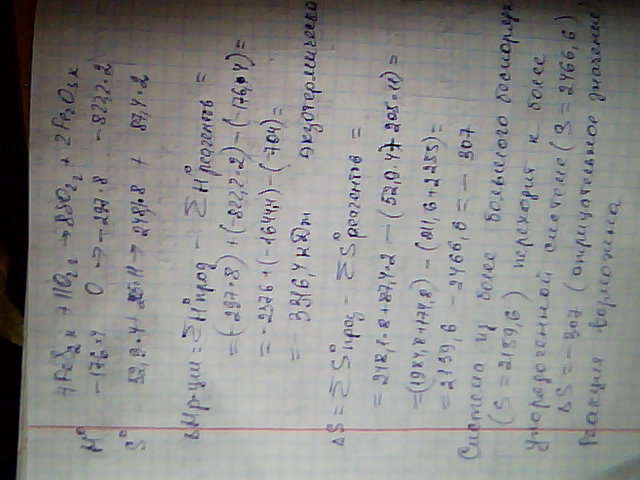 4FeS₂ к + 11O₂ г → 8SO₂ г + 2Fe₂O₃ к
H° -176·4 0 → -297·8 -822,2·2
S° 52,9·4 + 205·11 → 248,1·8 + 87,4·2
ΔHр-ции = ΣH°прод - ΣH°реагентов =
= (-297·8) + (-822,2·2) - (-176·4) =
= -2376 + (-1644,4) - (-704) =
= - 3316,4 кДж экзотермическая
ΔS = ΣS°прод - ΣS°реагентов =
= 248,1·8 + 87,4·2 - (52,9·4 + 205·11) =
= (1984,8 + 174,8) - (211,6 + 2255) =
= 2159,6 - 2466,6 = - 307
Система из более большого беспоряд
(S = 2159,6) переходит к более
упорядоченной системе (S = 2466,6)
ΔS = -307 (отрицательное значение)
Реакция возможна